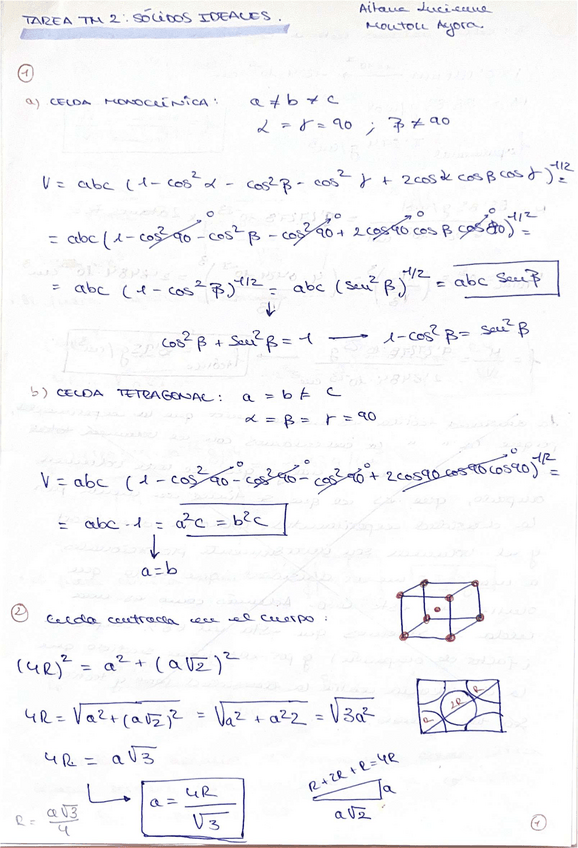 TAREA TM 2: SÓLIDOS IDEALES.
Aitana Luciana
Montoll Ayora.
1
a) CELDA MONOCLÍNICA: a ≠ b ≠ c
α = γ = 90 ; β ≠ 90
V = abc (1 - cos²α - cos²β - cos²γ + 2cosα cosβ cosγ)^-1/2 =
= abc (1 - cos²90 0 - cos²β - cos²90 0 + 2cos90 cosβ cos90 0)^-1/2 =
= abc (1 - cos²β)^-1/2 = abc (sen²β)^-1/2 = abc senβ
cos²β + sen²β = 1 → 1 - cos²β = sen²β
b) CELDA TETRAGONAL: a = b ≠ c
α = β = γ = 90
V = abc (1 - cos²90 0 - cos²90 0 - cos²90 0 + 2cos90 cos90 cos90 0)^-1/2 =
= abc · 1 = a²c = b²c
a = b
2 Celda centrada en el cuerpo:
(4R)² = a² + (a√2)²
4R = √a² + (a√2)² = √a² + a²2 = √3a²
R 2R R
4R = a√3
a = 4R/√3
R + 2R + R = 4R
a
a√2
R = a√3/4
1